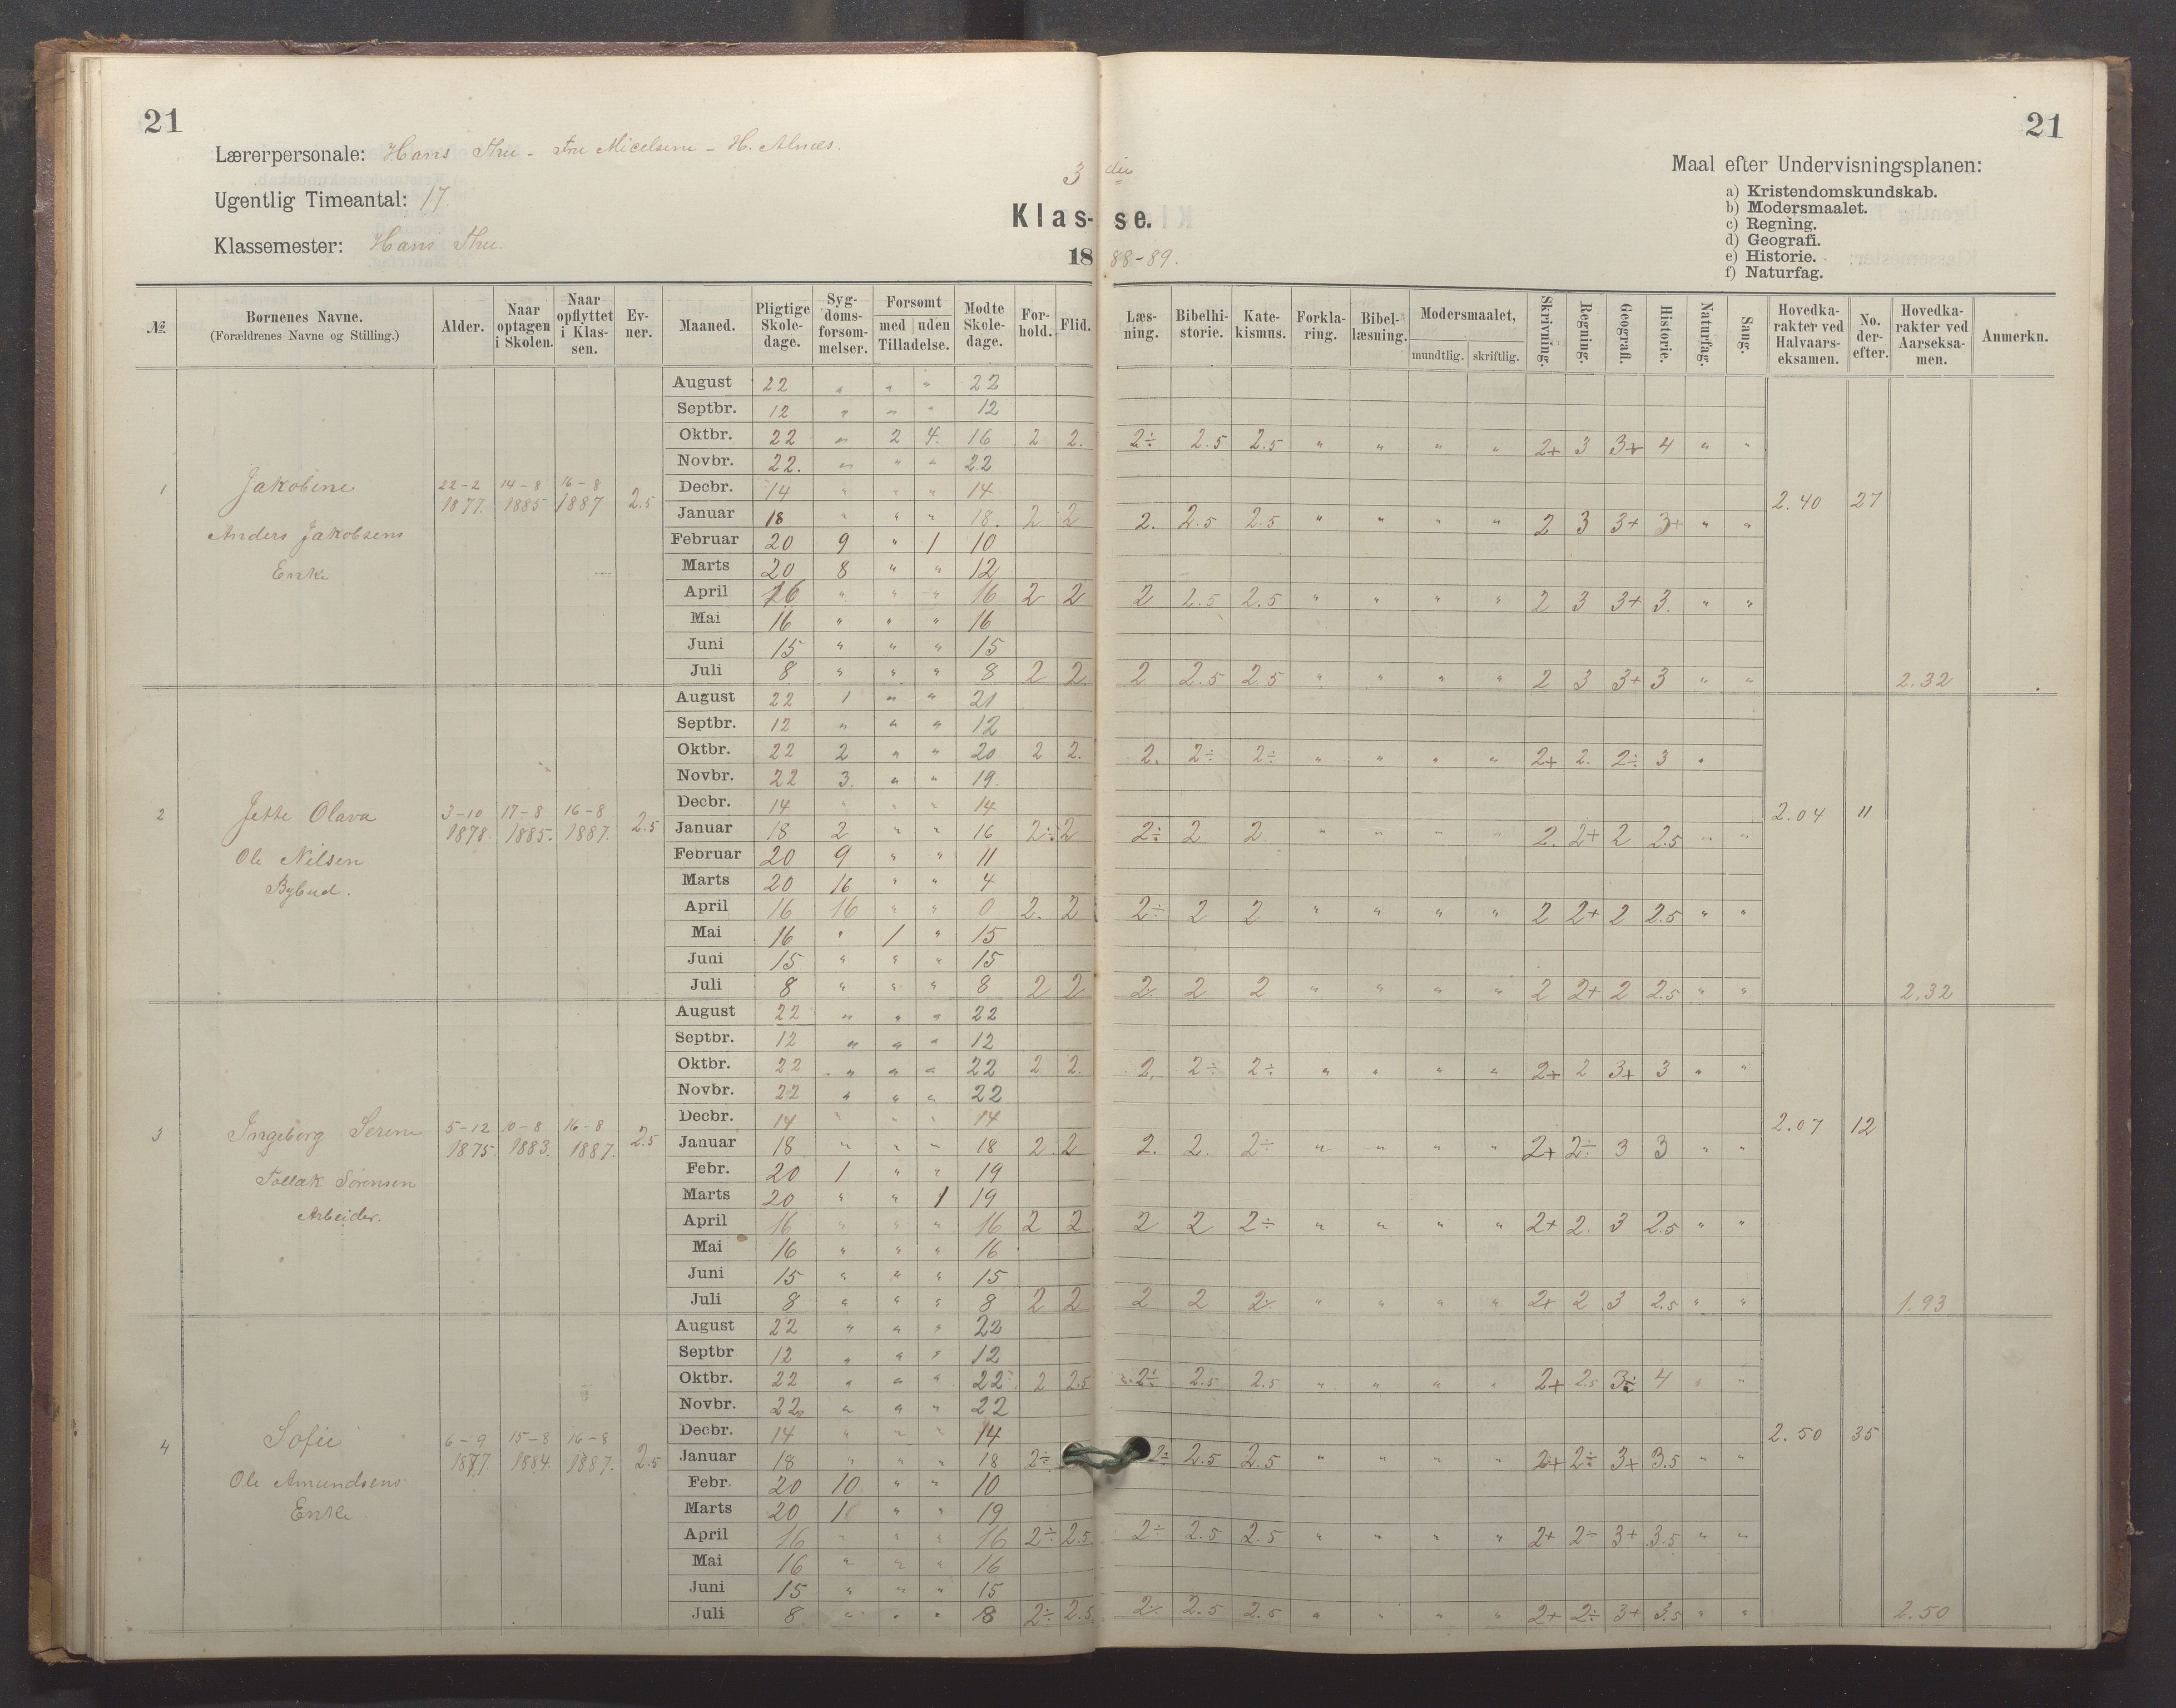 21
21
Lærerpersonale: Hans Thu - Fru Micelsene - H. Alnæs.
Ugentlig Timeantal: 17.
Klassemester: Hans Thu.
3 die
Klas- se.
18 88-89.
Maal efter Undervisningsplanen:
a) Kristendomskundskab.
b) Modersmaalet.
c) Regning.
d) Geografi.
e) Historie.
f) Naturfag.
№. Børnenes Navne. (Forældrenes Navne og Stilling.) Alder. Naar optagen i Skolen. Naar opflyttet i Klassen. Evner. Maaned. Pligtige Skoledage. Sygdomsforsommelser. Forsømt med uden Tilladelse. Mødte Skoledage. Forhold. Flid. Læsning. Bibelhistorie. Katekismus. Forklaring. Bibellæsning. Modersmaalet, mundtlig. skriftlig. Skrivning. Regning. Geografi. Historie. Naturfag. Sang. Hovedkarakter ved Halvaarseksamen. No. derefter. Hovedkarakter ved Aarseksamen. Anmerkn.
1 Jakobine 22-2 1877. 14-8 1885 16-8 1887 2.5 2.40 27
Anders Jakobsens
Enke
August 22 " " " 22
Septbr. 12 " " " 12
Oktbr. 22 " 2 4. 16 2 2. 2÷ 2.5 2.5 " " " " 2+ 3 3+ 4 " "
Novbr. 22. " " " 22
Decbr. 14 " " " 14
Januar 18 " " " 18. 2 2 2. 2.5 2.5 " " " " 2 3 3+ 3+ " "
Februar 20 9 " 1 10
Marts 20 8 " " 12
April 16 " " " 16 2 2 2 2.5 2.5 " " " " 2 3 3+ 3. " "
Mai 16 " " " 16
Juni 15 " " " 15
Juli 8 " " " 8 2 2 2 2.5 2.5 " " " " 2 3 3+ 3 " " 2.32
2 Jette Olava 3-10 1878. 17-8 1885. 16-8 1887. 2.5 2.04 11
Ole Nilsen
Bybud.
August 22 1 " " 21
Septbr. 12 " " " 12
Oktbr. 22 2 " " 20 2 2. 2. 2÷ 2÷ " " " " 2+ 2. 2÷ 3 "
Novbr. 22 3. " " 19.
Decbr. 14 " " " 14
Januar 18 2 " " 16 2÷ 2 2÷ 2 2. " " " " 2. 2+ 2 2.5 " "
Februar 20 9 " " 11
Marts 20 16 " " 4
April 16 16 " " 0 2. 2 2÷ 2 2 " " " " 2 2+ 2 2.5 " "
Mai 16 " 1 " 15
Juni 15 " " " 15
Juli 8 " " " 8 2 2 2 2 2 " " " " 2 2+ 2 2.5 " " 2.32
3 Ingeborg Serine 5-12 1875 10-8 1883. 16-8 1887. 2.5 2.07 12
Tollak Sørensen
Arbeider.
August 22 " " " 22
Septbr. 12 " " " 12
Oktbr. 22 " " " 22 2 2. 2. 2÷ 2÷ " " " " 2+ 2 3+ 3 " "
Novbr. 22 " " " 22
Decbr. 14 " " " 14
Januar 18 " " " 18 2 2 2. 2. 2÷ " " " " 2+ 2÷ 3 3 " "
Febr. 20 1 " " 19
Marts 20 " " 1 19
April 16 " " " 16 2 2 2 2 2÷ " " " " 2+ 2. 3 2.5 " "
Mai 16 " " " 16
Juni 15 " " " 15
Juli 8 " " " 8 2 2 2 2 2 " " " " 2+ 2 3 2.5 " " 1.93
4 Sofie 6-9 1877. 15-8 1884. 16-8 1887. 2.5 2.50 35
Ole Amundsens
Enke
August 22 " " " 22
Septbr 12 " " " 12
Oktbr. 22 " " " 22 2 2.5 2÷ 2.5 2.5 " " " " 2+ 2.5 3÷ 4 " "
Novbr. 22 " " " 22
Decbr. 14 " " " 14
Januar 18 " " " 18 2÷ 2÷ 2.5 2.5 " " " " 2+ 2÷ 3+ 3.5 " "
Febr. 20 10 " " 10
Marts 20 1 " " 19
April 16 " " " 16 2÷ 2.5. 2÷ 2.5 2.5 " " " " 2+ 2÷ 3+ 3.5 " "
Mai 16 " " " 16
Juni 15 " " " 15
Juli 8 " " " 8 2÷ 2.5. 2÷ 2.5 2.5 " " " " 2+ 2÷ 3+ 3.5 " " 2.50